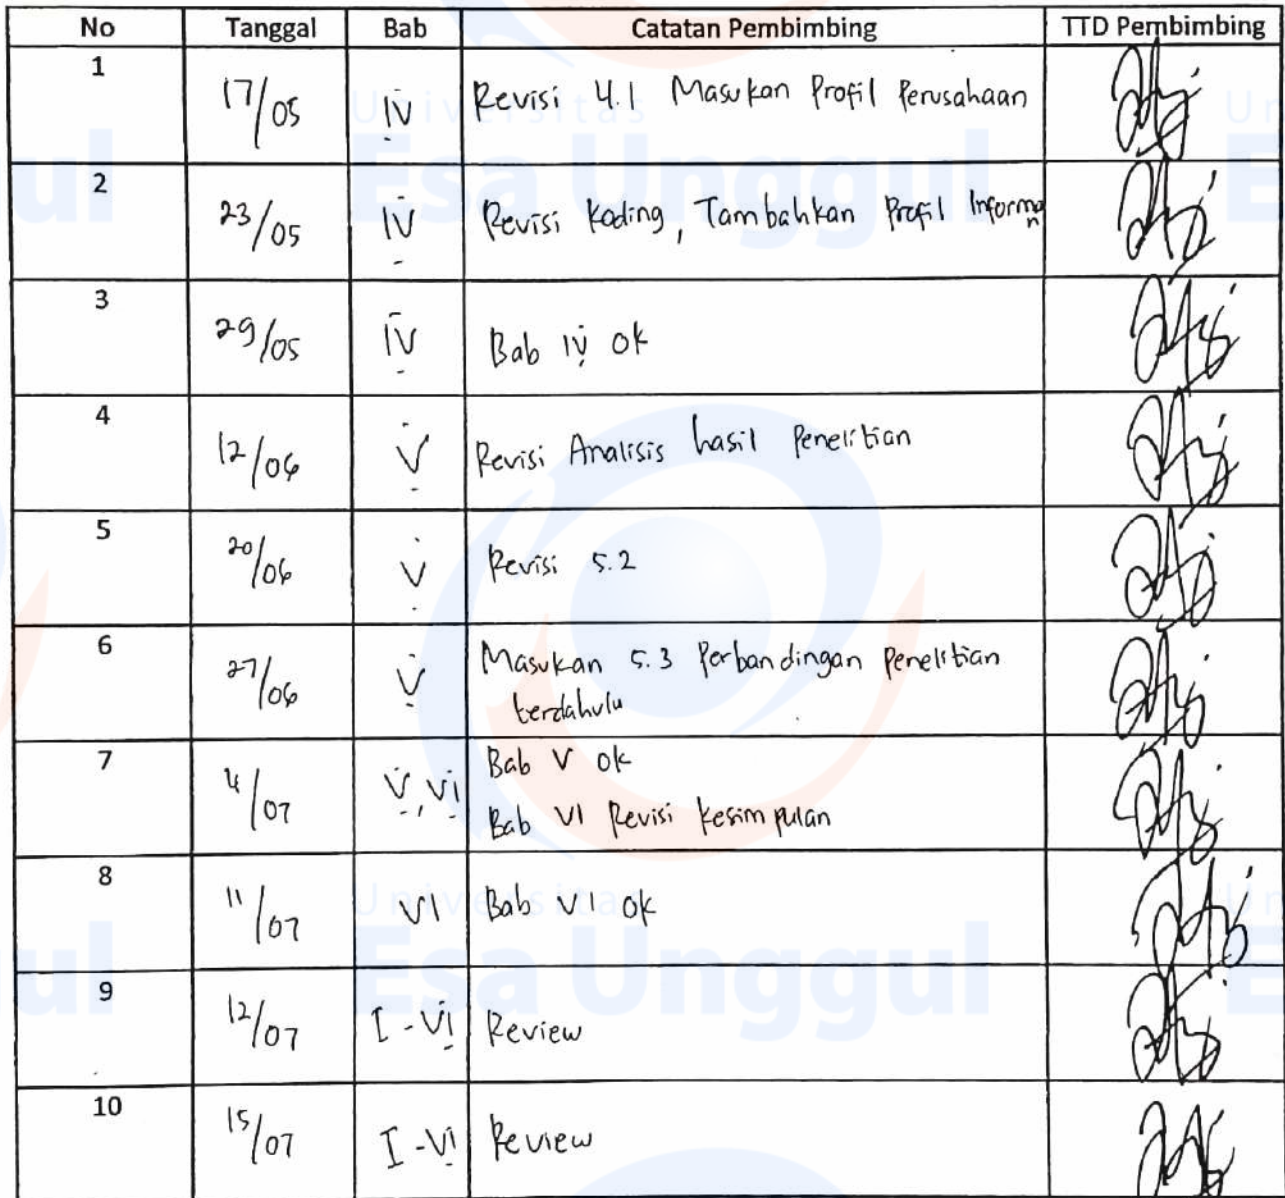 No Tanggal Bab Catatan Pembimbing TTD Pembimbing
1 17/05 IV Revisi 4.1 Masukan Profil Perusahaan
2 23/05 IV Revisi Koding, Tambahkan Profil Informan
3 29/05 IV Bab IV Ok
4 12/06 V Revisi Analisis hasil Penelitian
5 20/06 V Revisi 5.2
6 27/06 V Masukan 5.3 Perbandingan Penelitian
terdahulu
7 4/07 V, VI Bab V Ok
Bab VI Revisi Kesimpulan
8 11/07 VI Bab VI Ok
9 12/07 I - VI Review
10 15/07 I - VI Review
Universitas
Esa Unggul
Universitas
Esa Unggul